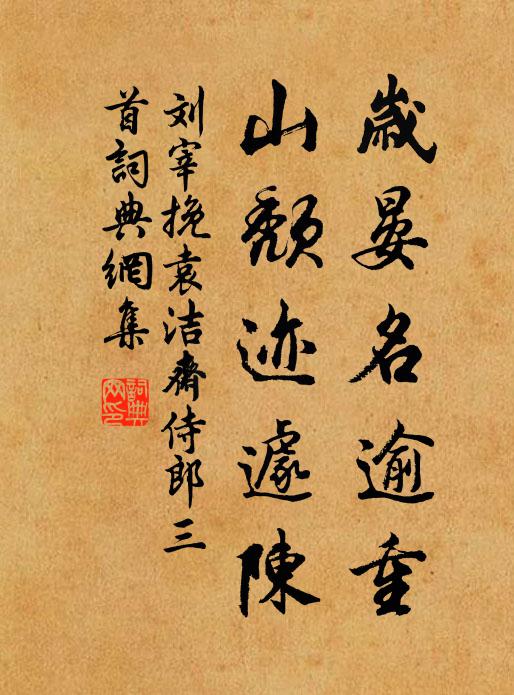 歲晏名逾重
山頹迹遽陳
刘宰挽袁洁齋侍郎三
首詞典網集
詞典網印